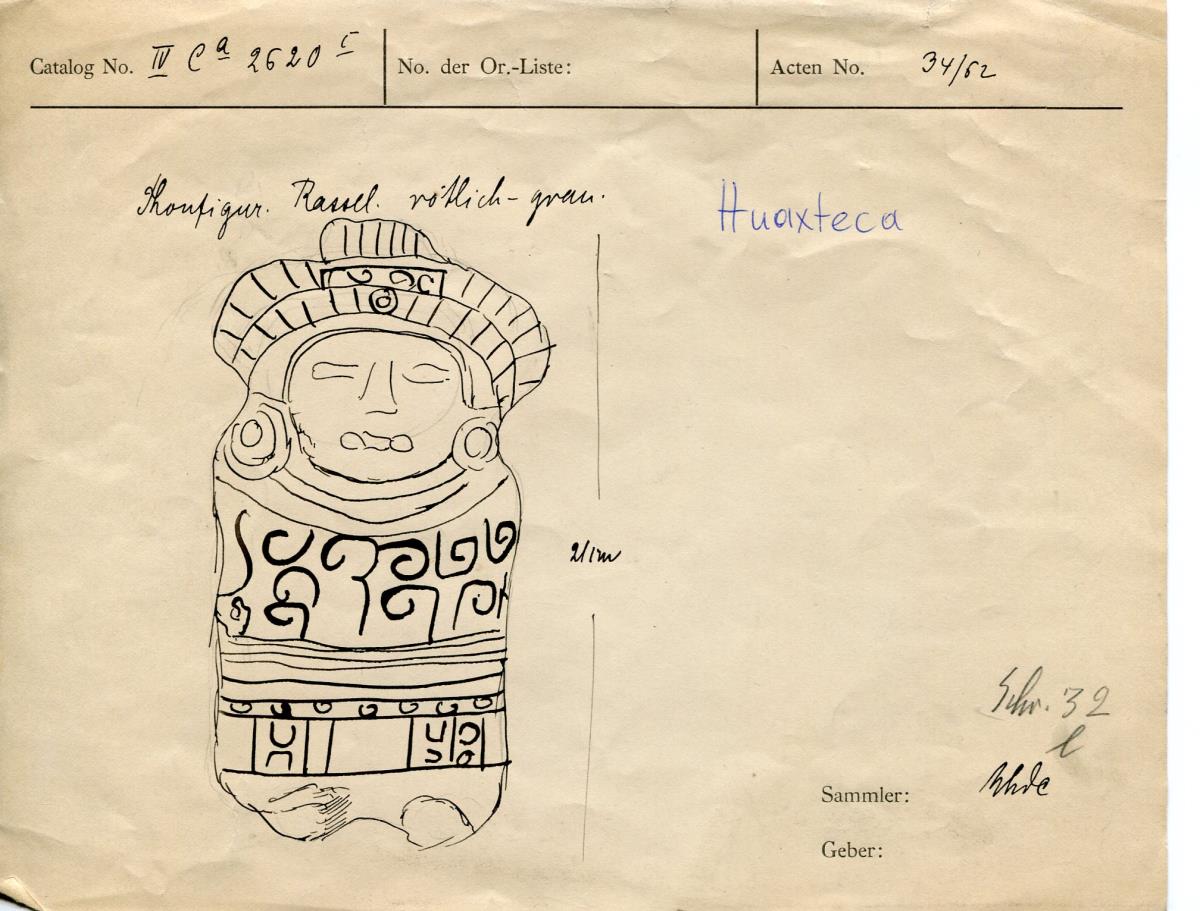 Catalog No. IV Ca 2620 c
No. der Or.-Liste:
Acten No. 34/62
Thonfigur. Rassel. rötlich-grau.
Huaxteca
21 cm
Schr. 32
l
Sammler: Uhde
Geber: